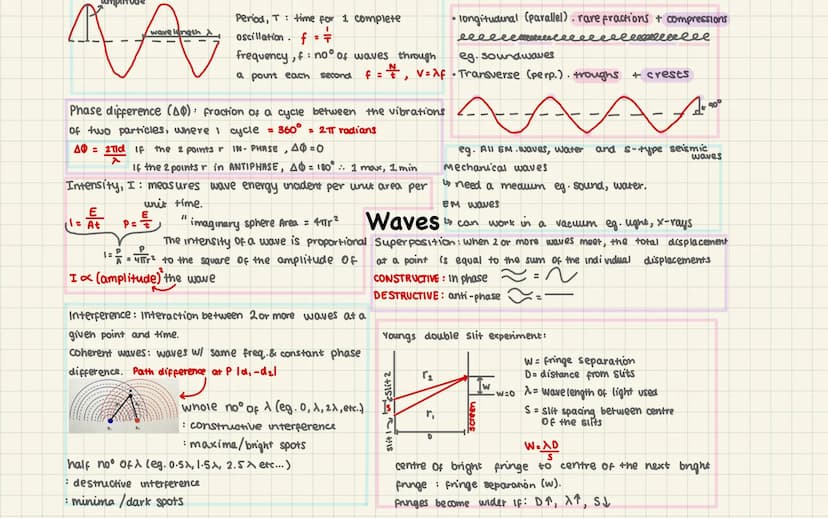 amplitude
wavelength λ
Period, T : time for 1 complete
oscillation. f = 1/T
frequency, f : no° of waves through
a point each second f = N/t , V=λf
• longitudinal (parallel). rarefractions + compressions
eg. soundwaves
• Transverse (perp.). troughs + crests
90°
eg. All EM.waves, water and s-type seismic
waves
Phase difference (ΔΦ): fraction of a cycle between the vibrations
of two particles, where 1 cycle = 360° = 2π radians
ΔΦ = 2πd/λ if the 2 points r IN-PHASE, ΔΦ=0
if the 2 points r in ANTIPHASE, ΔΦ = 180° ∴ 1 max, 1 min
Mechanical waves
↳ need a medium eg. sound, water.
EM waves
↳ can work in a vacuum eg. light, x-rays
Intensity, I : measures wave energy incident per unit area per
unit time.
I = E/At P = E/t "imaginary sphere Area = 4πr²
I = P/A = P/4πr²
The intensity of a wave is proportional
to the square of the amplitude of
I ∝ (amplitude)² the wave
Waves
Superposition: when 2 or more waves meet, the total displacement
at a point is equal to the sum of the individual displacements
CONSTRUCTIVE: in phase =
DESTRUCTIVE: anti-phase =
Interference: interaction between 2 or more waves at a
given point and time.
Coherent waves: waves w/ same freq. & constant phase
difference. Path difference at P |d₁-d₂|
whole no° of λ (eg. 0, λ, 2λ, etc.)
: constructive interference
: maxima/bright spots
half no° of λ (eg. 0.5λ, 1.5λ, 2.5λ etc...)
: destructive interference
: minima /dark spots
Youngs double slit experiment:
slit 1
slit 2
S
r₂
r₁
D
screen
W
w=0
W = fringe separation
D = distance from slits
λ = wavelength of light used
S = slit spacing between centre
of the slits
W = λD/S
centre of bright fringe to centre of the next bright
fringe : fringe separation (w).
fringes become wider if: D↑, λ↑, S↓